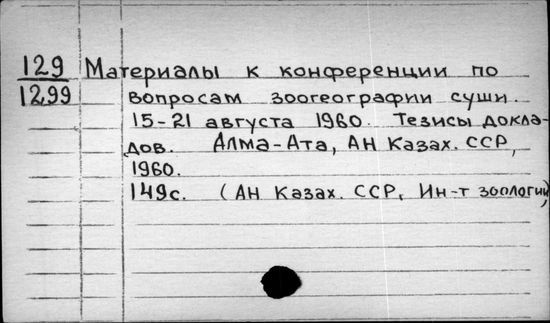 129 Материалы к конференции по
1299 вопросам зоогеографии суши.
15-21 августа 1960. Тезисы докла-
дов. Алма-Ата, АН Казах. ССР,
1960.
149с. (АН Казах. ССР, Ин-т зоологии)